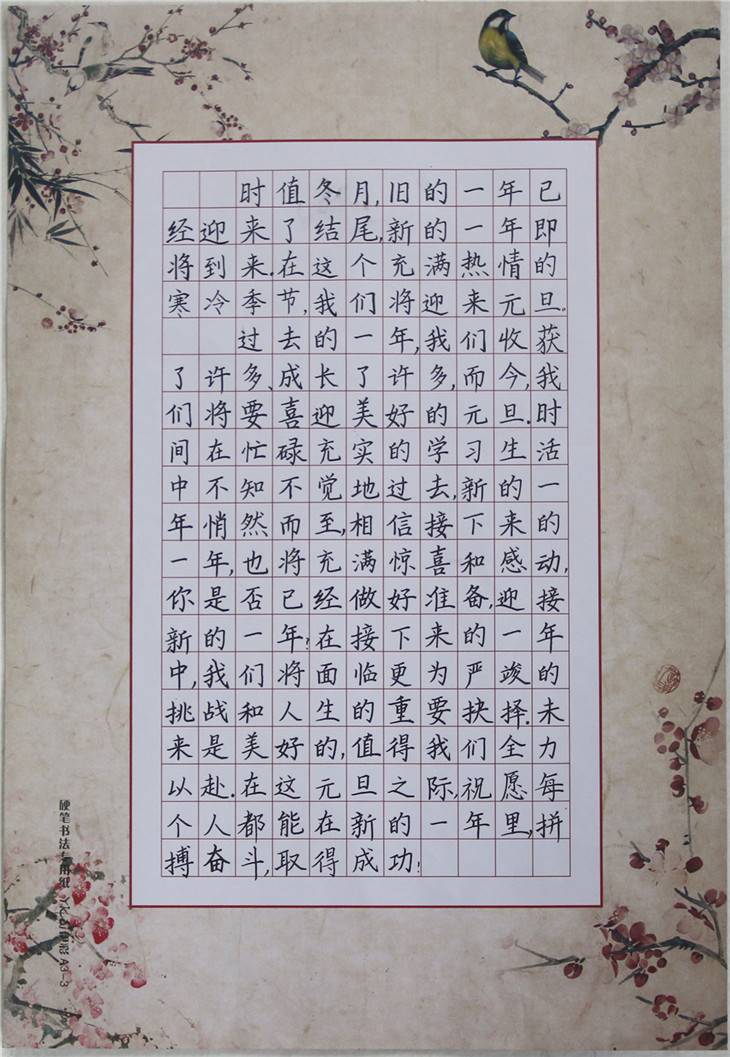 时值冬月,旧的一年已
经迎来了结尾,新的一年即
将到来.在这个充满热情的
寒冷季节,我们将迎来元旦.
过去的一年,我们收获
了许多、成长了许多,而今,我
们将要喜迎美好的元旦.时
间在忙碌充实的学习生活
中不知不觉地过去,新的一
年悄然而至,相信接下来的
一年,也将充满惊喜和感动,
你是否已经做好准备,迎接
新的一年?在接下来的一年
中,我们将面临更为严峻的
挑战和人生的重要抉择.未
来是美好的,值得我们全力
以赴.在这元旦之际,祝愿每
个人都能在新的一年里,拼
搏奋斗,取得成功!
硬笔书法专用纸 A3-3